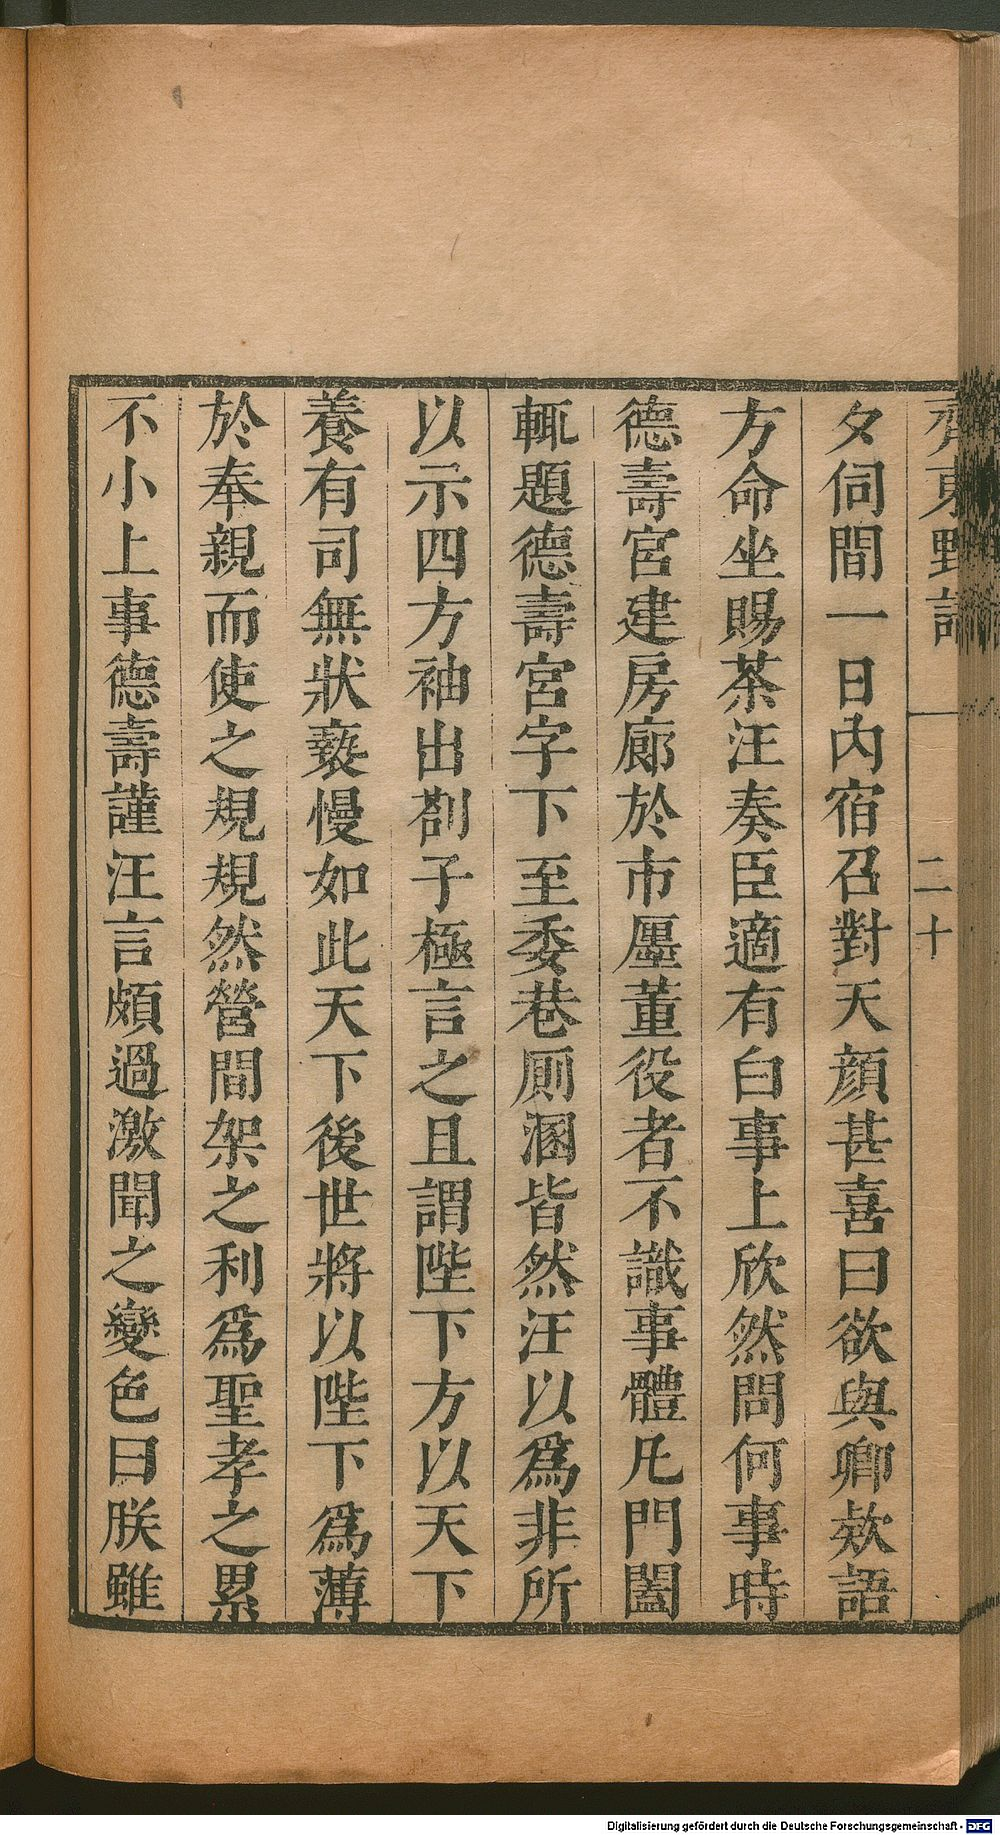 齊東野語
二十
夕伺間一日內宿召對天顔甚喜曰欲與卿欵語
方命坐賜茶汪奏臣適有白事上欣然問何事時
德壽宮建房廊於市廛董役者不識事體凡門闔
輒題德壽宮字下至委巷厠溷皆然汪以爲非所
以示四方袖出劄子極言之且謂陛下方以天下
養有司無狀䙝慢如此天下後世將以陛下爲薄
於奉親而使之規規然營間架之利爲聖孝之累
不小上事德壽謹汪言頗過激聞之變色曰朕雖
Digitalisierung gefördert durch die Deutsche Forschungsgemeinschaft - DFG